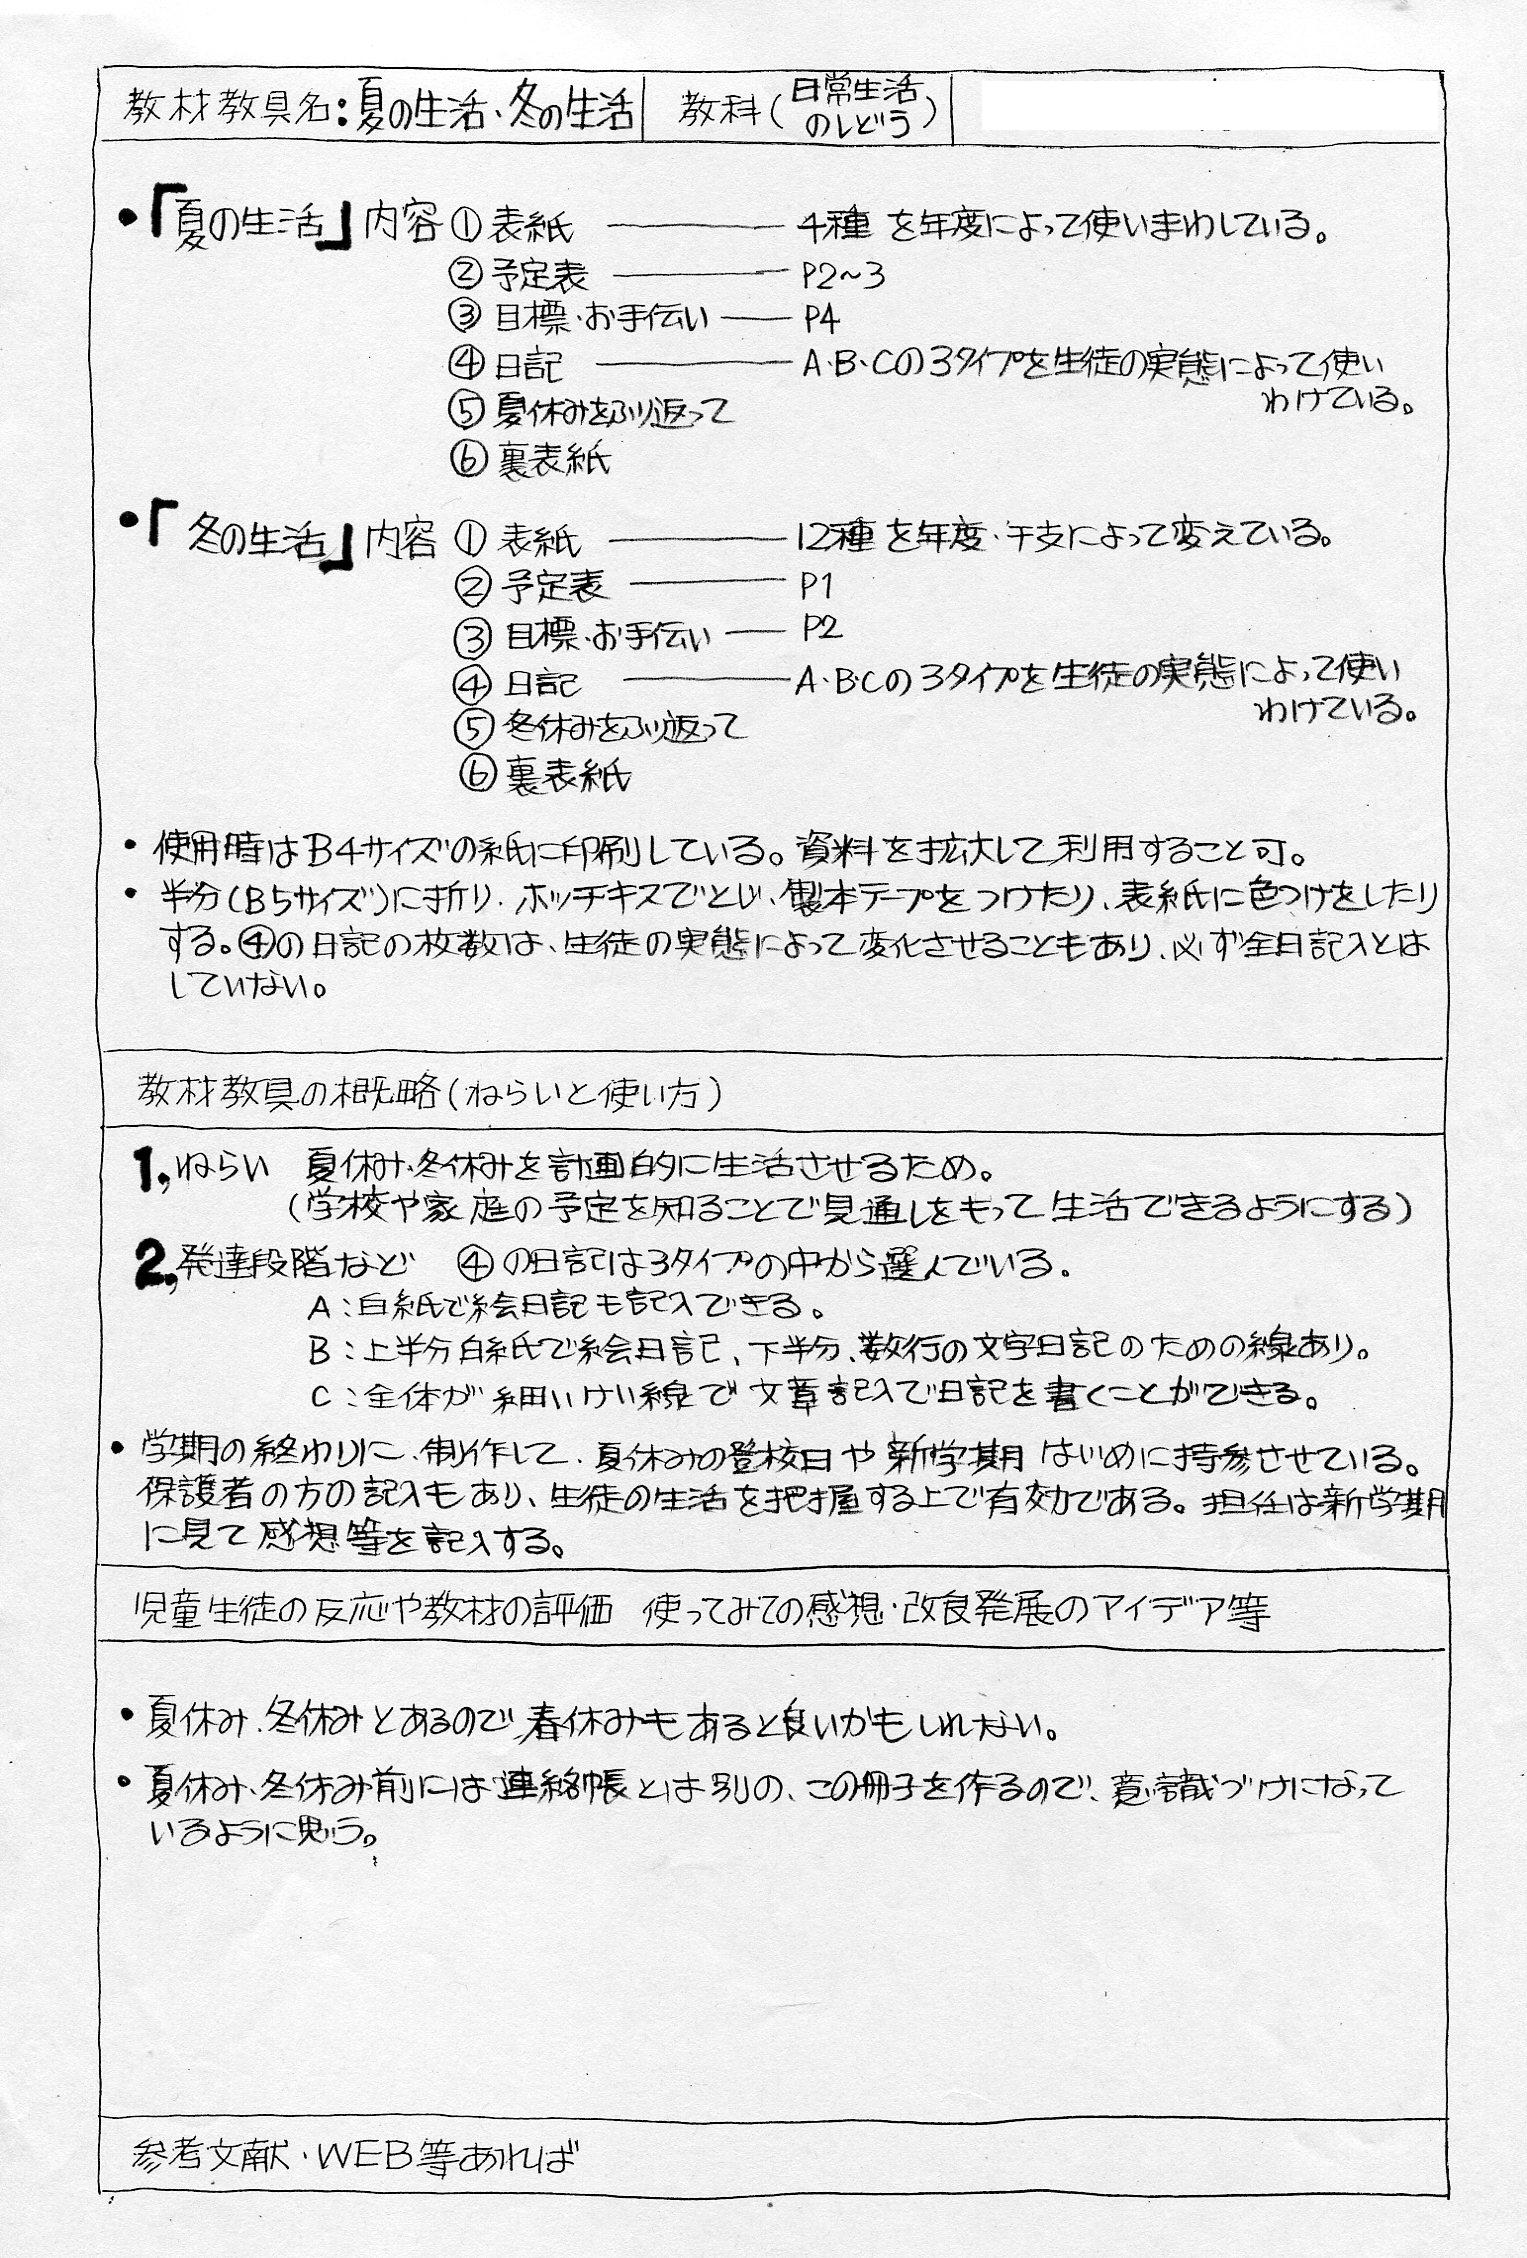 教材教具名：夏の生活、冬の生活 教科(日常生活のしどう)
・「夏の生活」内容 ① 表紙 ――― 4種 を年度によって使いまわしている。
② 予定表 ――― P2〜3
③ 目標・お手伝い ―― P4
④ 日記 ――― A・B・Cの3タイプを生徒の実態によって使い
わけている。
⑤ 夏休みをふり返って
⑥ 裏表紙
・「冬の生活」内容 ① 表紙 ――― 12種 を年度・干支によって変えている。
② 予定表 ――― P1
③ 目標・お手伝い ―― P2
④ 日記 ――― A・B・Cの3タイプを生徒の実態によって使い
わけている。
⑤ 冬休みをふり返って
⑥ 裏表紙
・使用時はB4サイズの紙に印刷している。資料を拡大して利用すること可。
・半分(B5サイズ)に折り、ホッチキスでとじ、製本テープをつけたり、表紙に色つけをしたり
する。④の日記の枚数は、生徒の実態によって変化させることもあり、必ず全日記入とは
していない。
教材教具の概略(ねらいと使い方)
1, ねらい 夏休み、冬休みを計画的に生活させるため。
(学校や家庭の予定を知ることで見通しをもって生活できるようにする)
2, 発達段階など ④の日記は3タイプの中から選んでいる。
A：白紙で絵日記も記入できる。
B：上半分白紙で絵日記、下半分、数行の文字日記のための線あり。
C：全体が細いけい線で文章記入で日記を書くことができる。
・学期の終わりに、制作して、夏休みの登校日や新学期はじめに持参させている。
保護者の方の記入もあり、生徒の生活を把握する上で有効である。担任は新学期
に見て感想等を記入する。
児童生徒の反応や教材の評価 使ってみての感想・改良発展のアイデア等
・夏休み、冬休みとあるので、春休みもあると良いかもしれない。
・夏休み、冬休み前には連絡帳とは別の、この冊子を作るので、意識づけになって
いるように思う。
参考文献・WEB等あれば